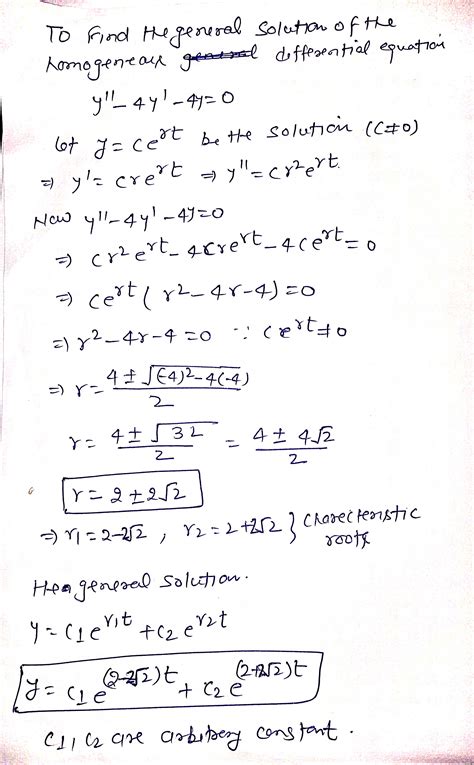 To Find the general solution of the
homogeneous general differential equation
y'' - 4y' - 4y = 0
let y = ce^{rt} be the solution (c≠0)
⇒ y' = cre^{rt} ⇒ y'' = cr²e^{rt}.
Now y'' - 4y' - 4y = 0
⇒ cr²e^{rt} - 4cre^{rt} - 4ce^{rt} = 0
⇒ ce^{rt} (r² - 4r - 4) = 0
⇒ r² - 4r - 4 = 0 ∵ ce^{rt} ≠ 0
⇒ r = (4 ± √((-4)² - 4(-4))) / 2
r = (4 ± √32) / 2 = (4 ± 4√2) / 2
r = 2 ± 2√2
⇒ r₁ = 2-2√2, r₂ = 2+2√2 } Charecteristic
roots
general solution.
y = c₁e^{r₁t} + c₂e^{r₂t}
y = c₁e^{(2-2√2)t} + c₂e^{(2+2√2)t}
c₁, c₂ are arbitrary constant.